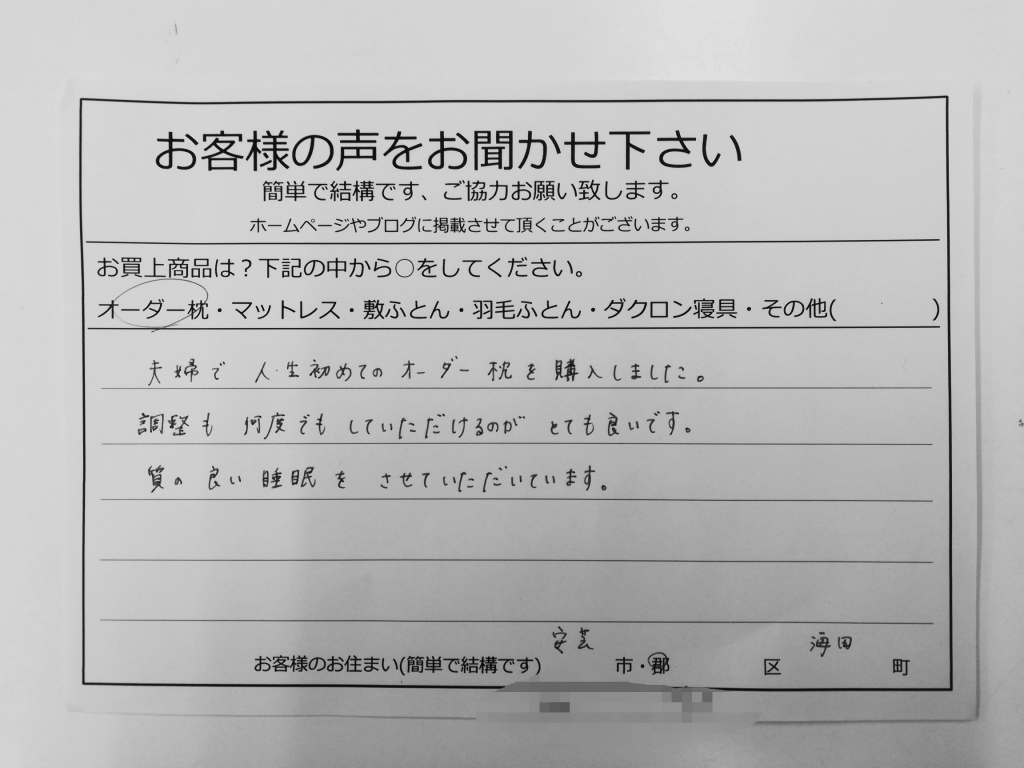 お客様の声をお聞かせ下さい
簡単で結構です、ご協力お願い致します。
ホームページやブログに掲載させて頂くことがございます。
お買上商品は？下記の中から○をしてください。
オーダー枕・マットレス・敷ふとん・羽毛ふとん・ダクロン寝具・その他( )
夫婦で 人生初めてのオーダー枕を購入しました。
調整も 何度でもしていただけるのが とても良いです。
質の良い睡眠を させていただいています。
安芸 海田
お客様のお住まい(簡単で結構です) 市・郡 区 町